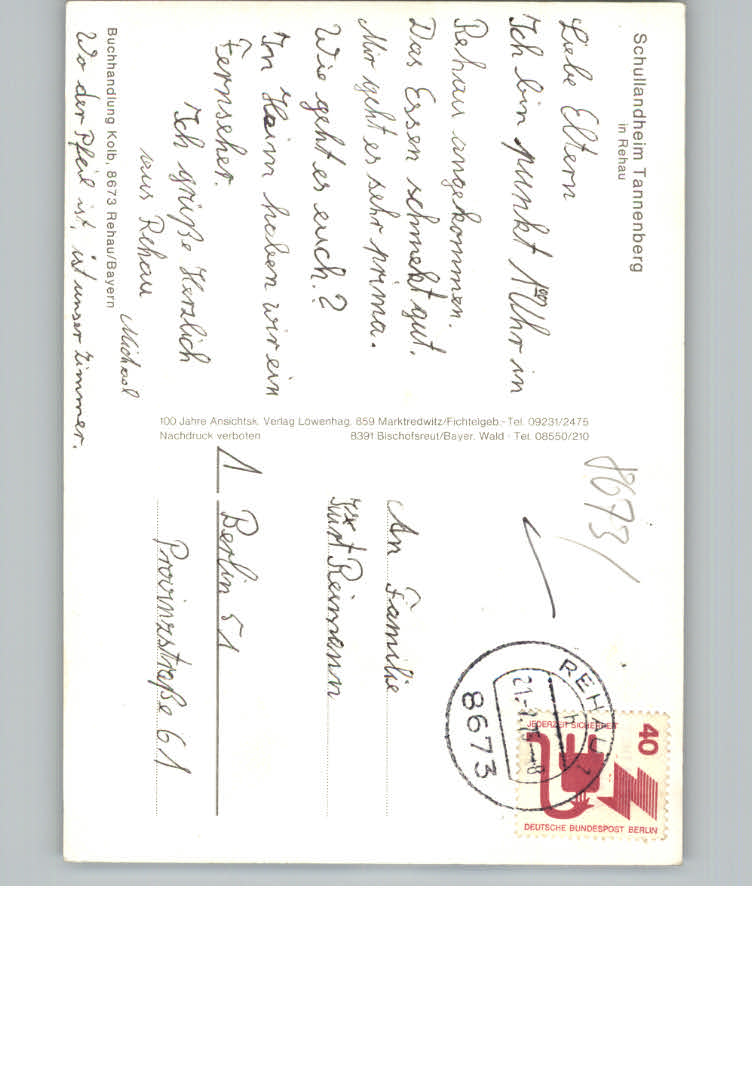 Schullandheim Tannenberg
in Rehau
Liebe Eltern
Ich bin punkt 1 Uhr in
Rehau angekommen.
Das Essen schmekt gut.
Mir geht es sehr prima.
Wie geht es euch?
In Heim haben wir ein
Fernseher.
Ich grüße Herzlich
aus Rehau Michael
Buchhandlung Kolb, 8673 Rehau/Bayern
Wo der Pfeil ist, ist unser Zimmer.
100 Jahre Ansichtsk. Verlag Löwenhag, 859 Marktredwitz/Fichtelgeb.-Tel. 09231/2475
Nachdruck verboten 8391 Bischofsreut/Bayer. Wald - Tel. 08550/210
8673/
An Familie
Kurt Reimann
1 Berlin 51
Provinzstraße 61
REHAU 1
8673
40
JEDERZEIT SICHERHEIT
DEUTSCHE BUNDESPOST BERLIN